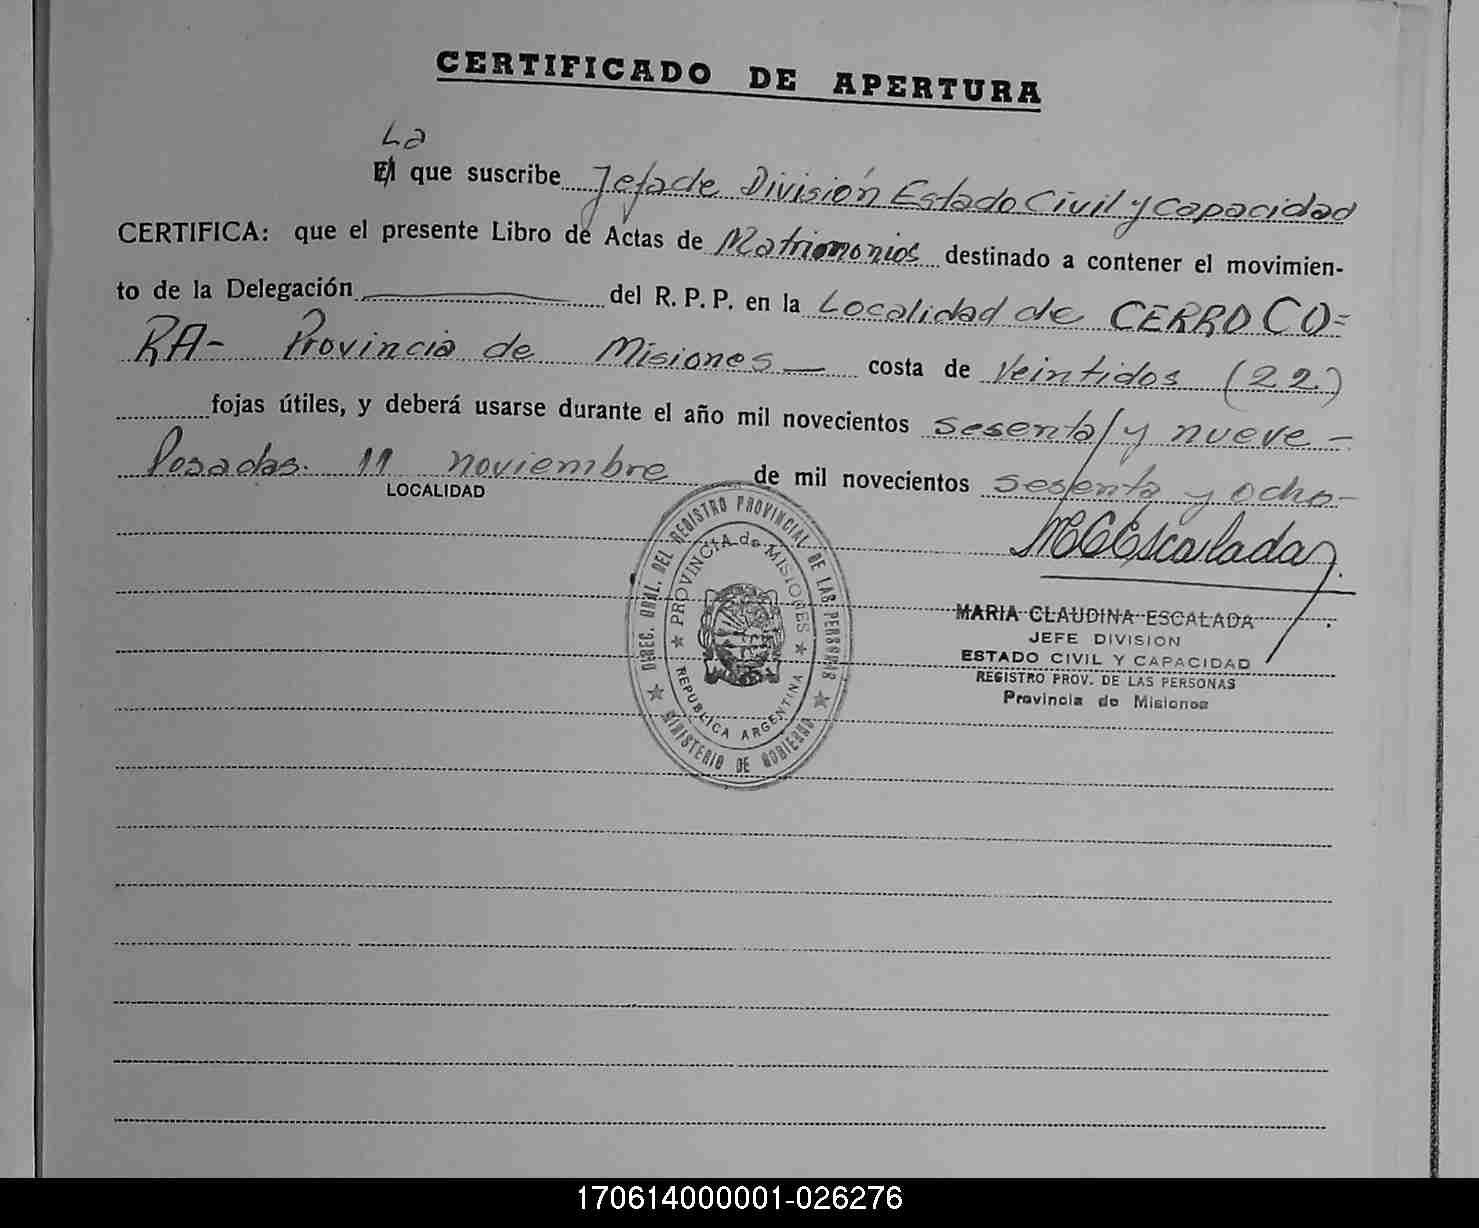 CERTIFICADO DE APERTURA
La
El que suscribe Jefa de División Estado Civil y Capacidad
CERTIFICA: que el presente Libro de Actas de Matrimonios destinado a contener el movimien-
to de la Delegación del R. P. P. en la Localidad de CERRO CO=
RA- Provincia de Misiones costa de Veintidos (22)
fojas útiles, y deberá usarse durante el año mil novecientos sesenta y nueve-
Posadas. 11 noviembre de mil novecientos sesenta y ocho-
LOCALIDAD
MCEscalada
DIREC. GRAL. DEL REGISTRO PROVINCIAL DE LAS PERSONAS
PROVINCIA de MISIONES
REPUBLICA ARGENTINA
MINISTERIO DE GOBIERNO
MARIA CLAUDINA ESCALADA
JEFE DIVISION
ESTADO CIVIL Y CAPACIDAD
REGISTRO PROV. DE LAS PERSONAS
Provincia de Misiones
170614000001-026276